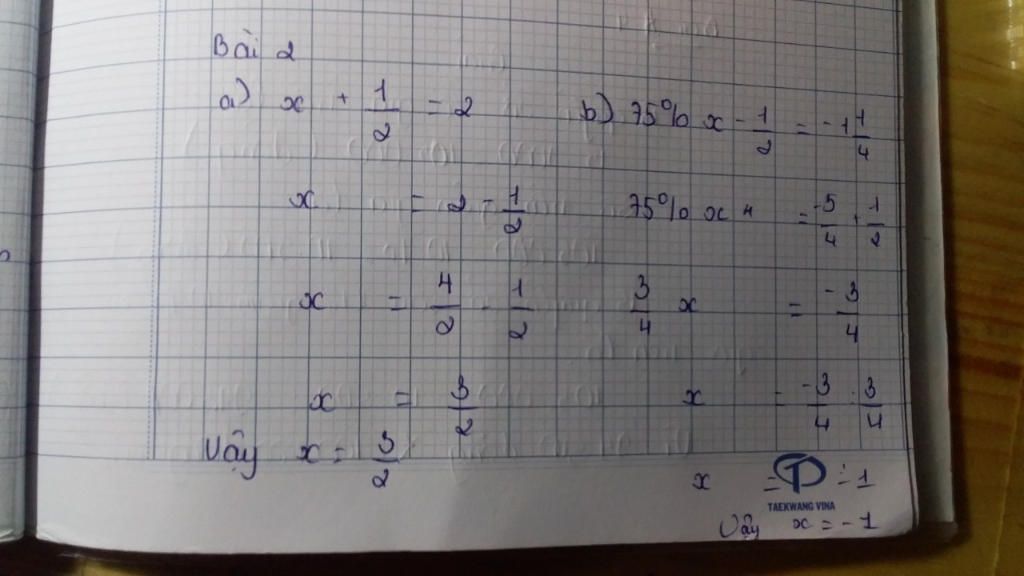 Bài 2
a) x + 1/2 = 2
x = 2 - 1/2
x = 4/2 - 1/2
x = 3/2
Vậy x = 3/2
b) 75% x - 1/2 = -1 1/4
75% x = -5/4 + 1/2
3/4 x = -3/4
x = -3/4 : 3/4
x = -1
Vậy x = -1
TAEKWANG VINA